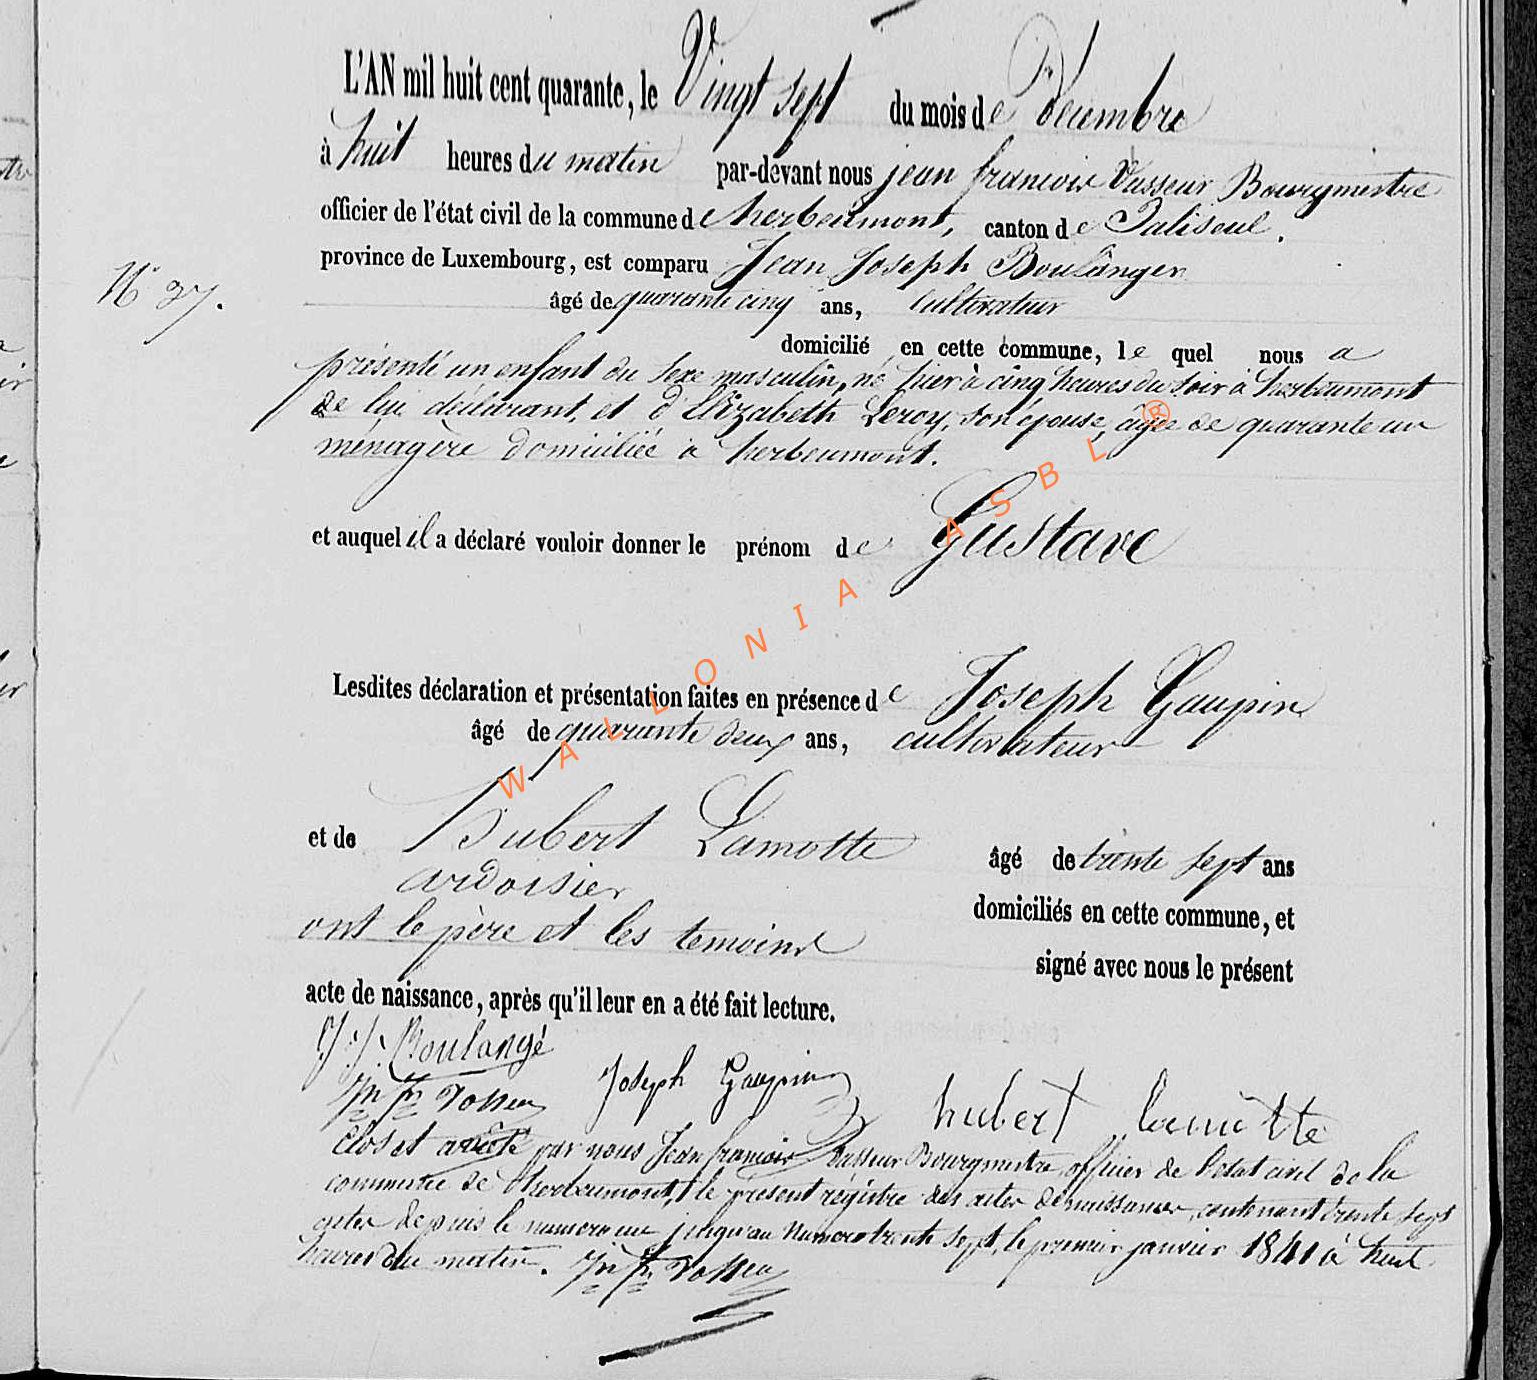 L'AN mil huit cent quarante, le Vingt sept du mois de Décembre
à huit heures du matin par-devant nous jean francois Vasseur Bourgmestre
officier de l'état civil de la commune de herbeumont, canton de Paliseul.
province de Luxembourg, est comparu Jean Joseph Boulanger
N° 37.
âgé de quarante cinq ans, cultivateur
domicilié en cette commune, le quel nous a
présenté un enfant du sexe masculin, né hier à cinq heures du soir à herbeumont
de lui déclarant, et d'Elizabeth Leroy, son épouse, âgée de quarante un
ménagère domiciliée à herbeumont.
et auquel il a déclaré vouloir donner le prénom de Gustave
Lesdites déclaration et présentation faites en présence de Joseph Gaupin
âgé de quarante deux ans, cultivateur
et de Hubert Lamotte âgé de trente sept ans
ardoisier
domiciliés en cette commune, et
ont le père et les temoins
signé avec nous le présent
acte de naissance, après qu'il leur en a été fait lecture.
J. J. Boulangé
Joseph Gaupin
hubert lamotte
Clos et arrêté par nous Jean francois Vasseur Bourgmestre officier de l'etat civil de la
commune de herbeumont, le present régistre des actes de naissances, contenant trente sept
actes depuis le numero un jusqu'au numero trente sept, le premier janvier 1841 à huit
heures du matin.
WALLONIA ASBL ®